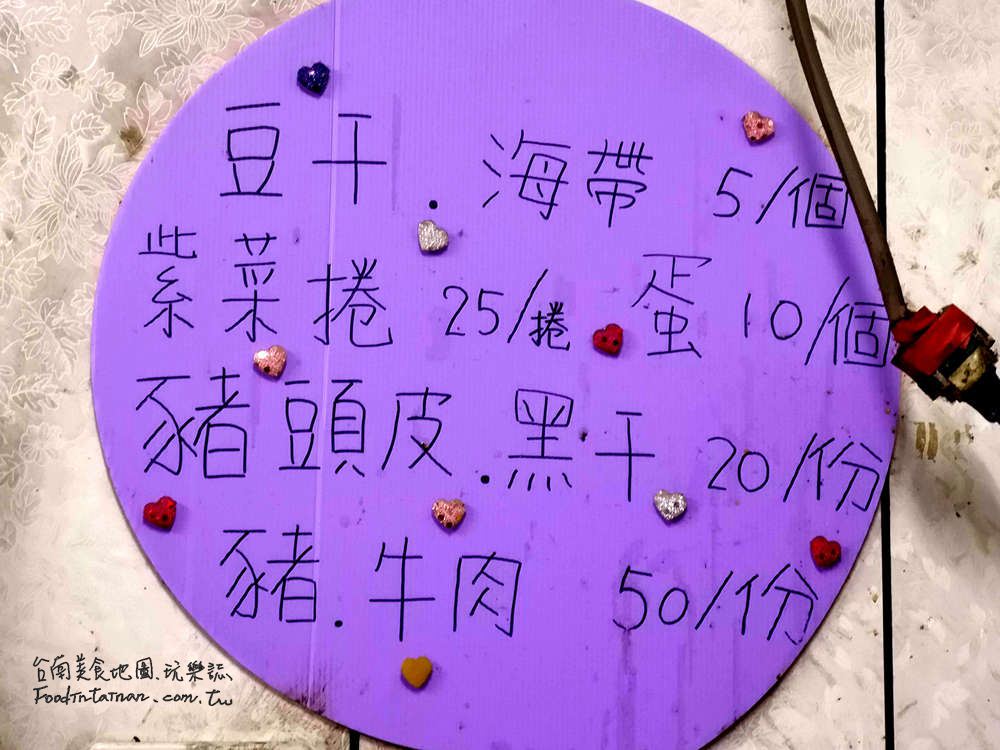 豆干.海帶 5/個
紫菜捲 25/捲 蛋 10/個
豬頭皮.黑干 20/份
豬.牛肉 50/份
台南美食地圖.玩樂誌
FoodInTainan.com.tw